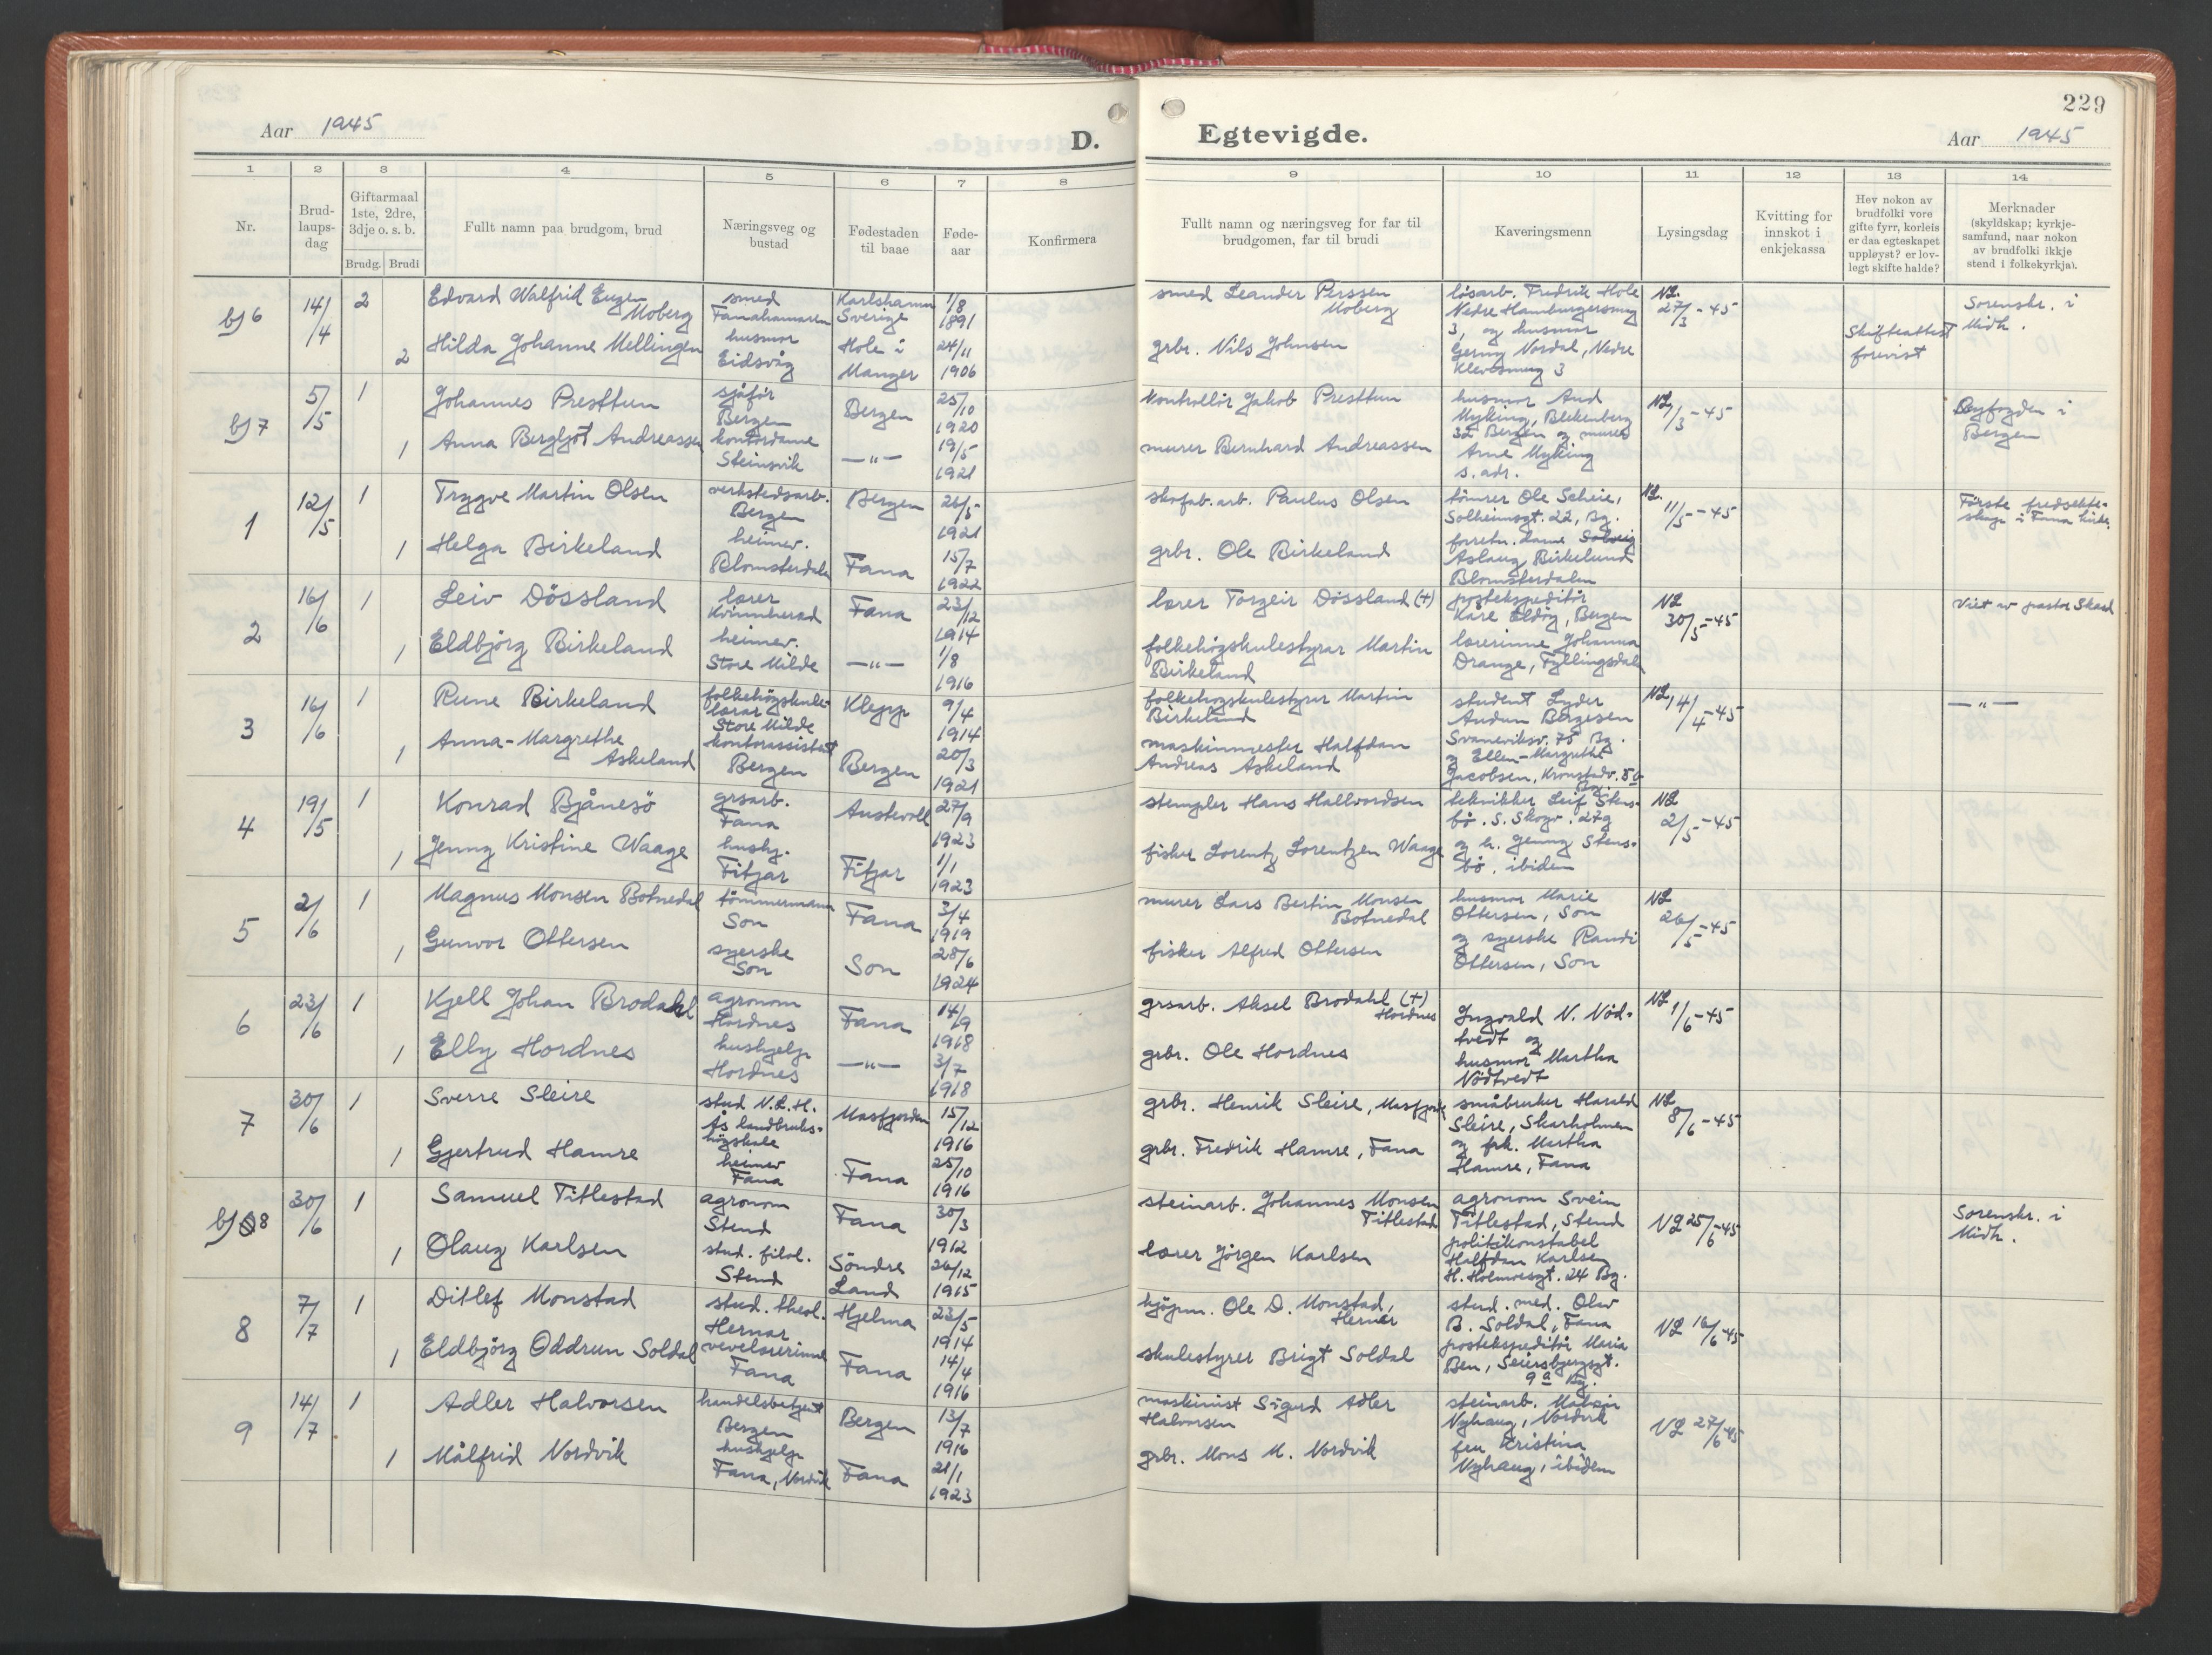 229
Aar 1945
D. Egtevigde.
Aar 1945
1 2 3 4 5 6 7 8 9 10 11 12 13 14
Nr.
Brud-
laups-
dag
Giftarmaal
1ste, 2dre,
3dje o. s. b.
Brudg. Brudi
Fullt namn paa brudgom, brud
Næringsveg og
bustad
Fødestaden
til baae
Føde-
aar
Konfirmera
Fullt namn og næringsveg for far til
brudgomen, far til brudi
Kaveringsmenn
Lysingsdag
Kvitting for
innskot i
enkjekassa
Hev nokon av
brudfolki vore
gifte fyrr, korleis
er daa egteskapet
uppløyst? er lov-
legt skifte halde?
Merknader
(skyldskap; kyrkje-
samfund, naar nokon
av brudfolki ikkje
stend i folkekyrkja).
bj 6
14/4
2
Edvard Walfrid Eugen
Moberg
smed
Fanahamaren
Karlshamn
Sverige
1/8
1891
smed Leander Perssen
Moberg
2
Hilda Johanne Mellingen
husmor
Eidsvåg
Hole i
Manger
24/11
1906
grbr. Nils Johnsen
løsarb. Fredrik Hole
Nedre Hamburgersmug
3, og husmor
Gerny Nordal, Nedre
Klevesmug 3
NL.
27/3-45
Skifteattest
forevist
Sorenskr. i
Midh.
bj 7
5/5
1
Johannes Presttun
sjåfør
Bergen
Bergen
25/10
1920
Kontrollør Jakob Presttun
1
Anna Bergljot Andreassen
kontordame
Steinsvik
—"—
19/5
1921
murer Bernhard Andreassen
husmor Aud
Myking, Blekenberg
32 Bergen og murer
Arne Myking
s. adr.
NL
/3-45
Byfogden i
Bergen
1
12/5
1
Trygve Martin Olsen
verkstedsarb.
Bergen
Bergen
26/5
1921
skofab. arb. Paulus Olsen
1
Helga Birkeland
heimev.
Blomsterdalen
Fana
15/7
1922
grbr. Ole Birkeland
tømrer Ole Scheie,
Solheimsgt. 22, Bg.
forretn. dame Solveig
Aslaug Birkelund
Blomsterdalen
NL.
11/5-45
Første fredsekte-
skap i Fana kirke.
2
16/6
1
Leiv Døssland
lærer
Kvinnherad
Fana
23/12
1914
lærer Torgeir Døssland (+)
1
Eldbjørg Birkeland
heimev.
Store Milde
—"—
1/8
1916
folkehøgskulestyrar Martin
Birkeland
postekspeditør
Kåre Eldøy, Bergen
lærerinne Johanna
Drange, Fyllingsdal
NL
30/5-45
Viet av pastor Skard
3
16/6
1
Rune Birkeland
folkehøgskule-
lærar
Store Milde
Klepp
9/4
1914
folkehøgskulestyrer Martin
Birkeland
1
Anna-Margrethe
Askeland
kontorassistent
Bergen
Bergen
20/3
1921
maskinmester Halfdan
Andreas Askeland
student Lyder
Audun Børgesen
Svaneviksv. 75 Bg.
og Ellen-Margrethe
Jacobsen, Kronstadv. 80
Bg.
NL 14/4-45
—"—
4
19/5
1
Konrad Bjånesø
grsarb.
Fana
Austevoll
27/9
1923
stempler Hans Hallvordsen
1
Jenny Kristine Waage
hushj.
Fitjar
Fitjar
1/1
1923
fisker Lorentz Lorentzen Waage
tekniker Leif Stens-
bø. S. Skogv. 27g
og h. Jenny Stens-
bø. ibiden
NL
2/5-45
5
2/6
1
Magnus Monsen Botnedal
tømmermann
Son
Fana
3/4
1919
murer Lars Bertin Monsen
Botnedal
1
Gunvor Ottersen
syerske
Son
Son
28/6
1924
fisker Alfred Ottersen
husmor Marie
Ottersen, Son
og syerske Randi
Ottersen, Son
NL
26/5-45
6
23/6
1
Kjell Johan Brodahl
agronom
Hordnes
Fana
14/9
1918
grsarb. Aksel Brodahl (+)
Hordnes
1
Elly Hordnes
hushjelp
Hordnes
—"—
3/7
1918
grbr. Ole Hordnes
Ingvald N. Nød-
tvedt og
husmor Martha
Nødtvedt
NL 1/6-45
7
30/6
1
Sverre Sleire
stud N.L.H.
Ås landbruks-
høgskule
Masfjorden
15/12
1916
grbr. Henrik Sleire, Masfjorden
1
Gjertrud Hamre
heimev
Fana
Fana
25/10
1916
grbr. Fredrik Hamre, Fana
småbruker Harald
Sleire, Skarholmen
og frk. Martha
Hamre, Fana
NL
8/6-45
bj 8
30/6
1
Samuel Titlestad
agronom
Stend
Fana
30/3
1912
steinarb. Johannes Monsen
Titlestad
1
Olaug Karlsen
stud. filol.
Stend
Søndre
Land
26/12
1915
lærer Jørgen Karlsen
agronom Svein
Titlestad, Stend
politikonstabel
Halfdan Karlsen
H. Holmesgt. 24 Bg.
NL 25/6-45
Sorenskr. i
Midh.
8
7/7
1
Ditlef Monstad
stud. theol.
Hernar
Hjelma
23/5
1914
kjøpm. Ole D. Monstad,
Hernar
1
Eldbjørg Oddrun Soldal
vevelærerinne
Fana
Fana
14/4
1916
skulestyrer Brigt Soldal
stud. med. Olav
B. Soldal, Fana
postekspeditør Maria
Ben, Seiersbjergsgt.
9a Bg.
NL 16/6-45
9
14/7
1
Adler Halvorsen
handelsbetjent
Bergen
Bergen
13/7
1916
maskinist Sigurd Adler
Halvorsen
1
Målfrid Nordvik
hushjelp
Fana, Nordvik
Fana
21/1
1923
grbr. Mons M. Nordvik
steinarb.
Nyhaug, Nordvik
fru Kristina
Nyhaug, ibidem
NL 27/6-45